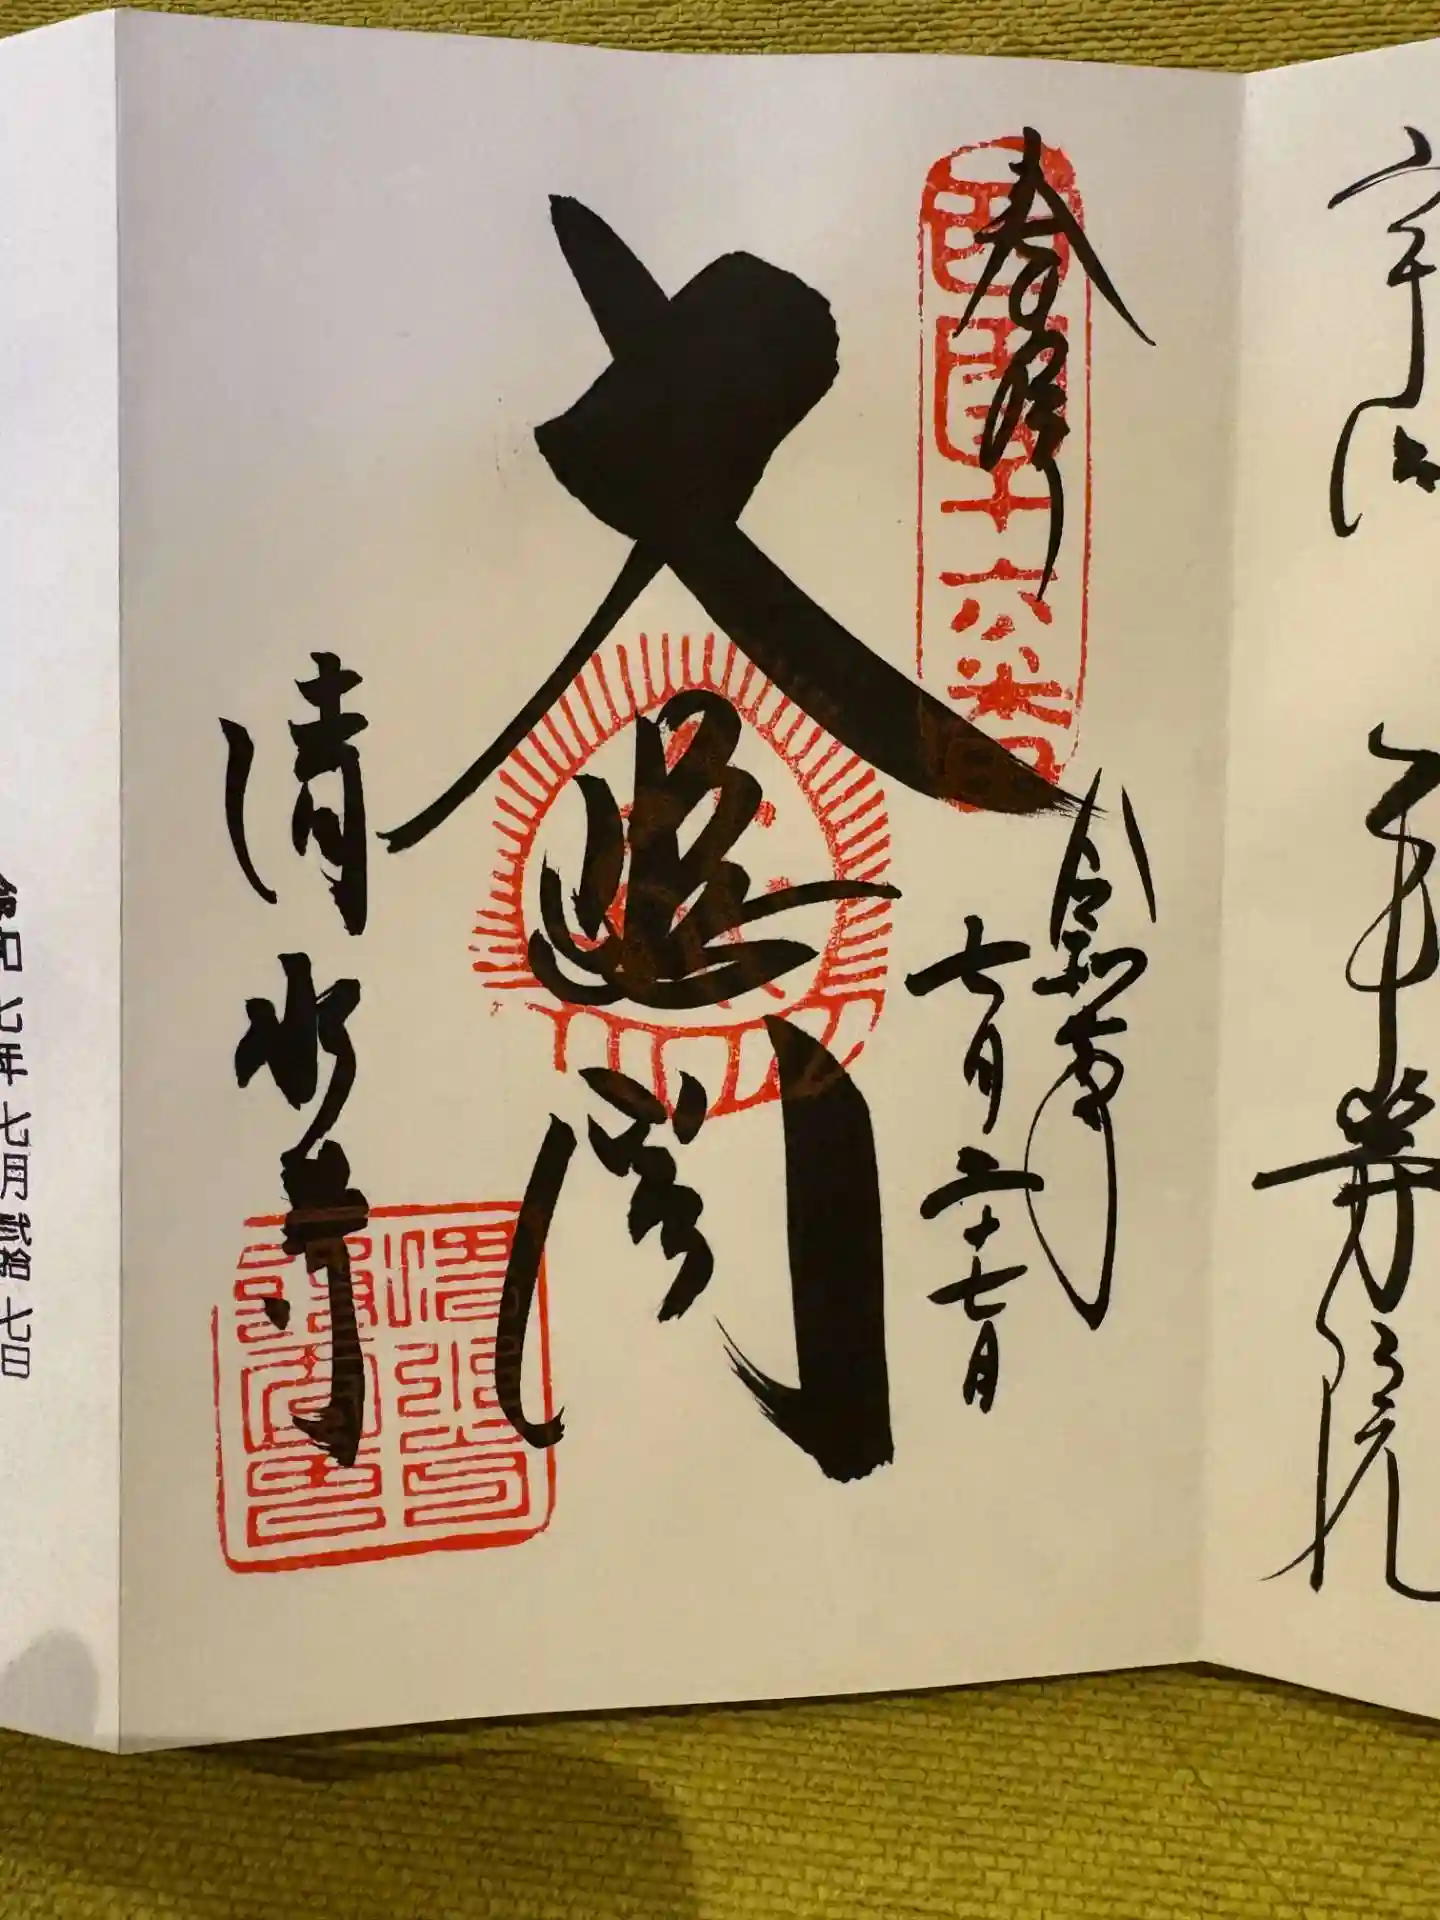 宇治
平等院
奉拝
西国十六番
令和七年
七月二十七日
大悲閣
清水寺
令和七年七月弐拾七日